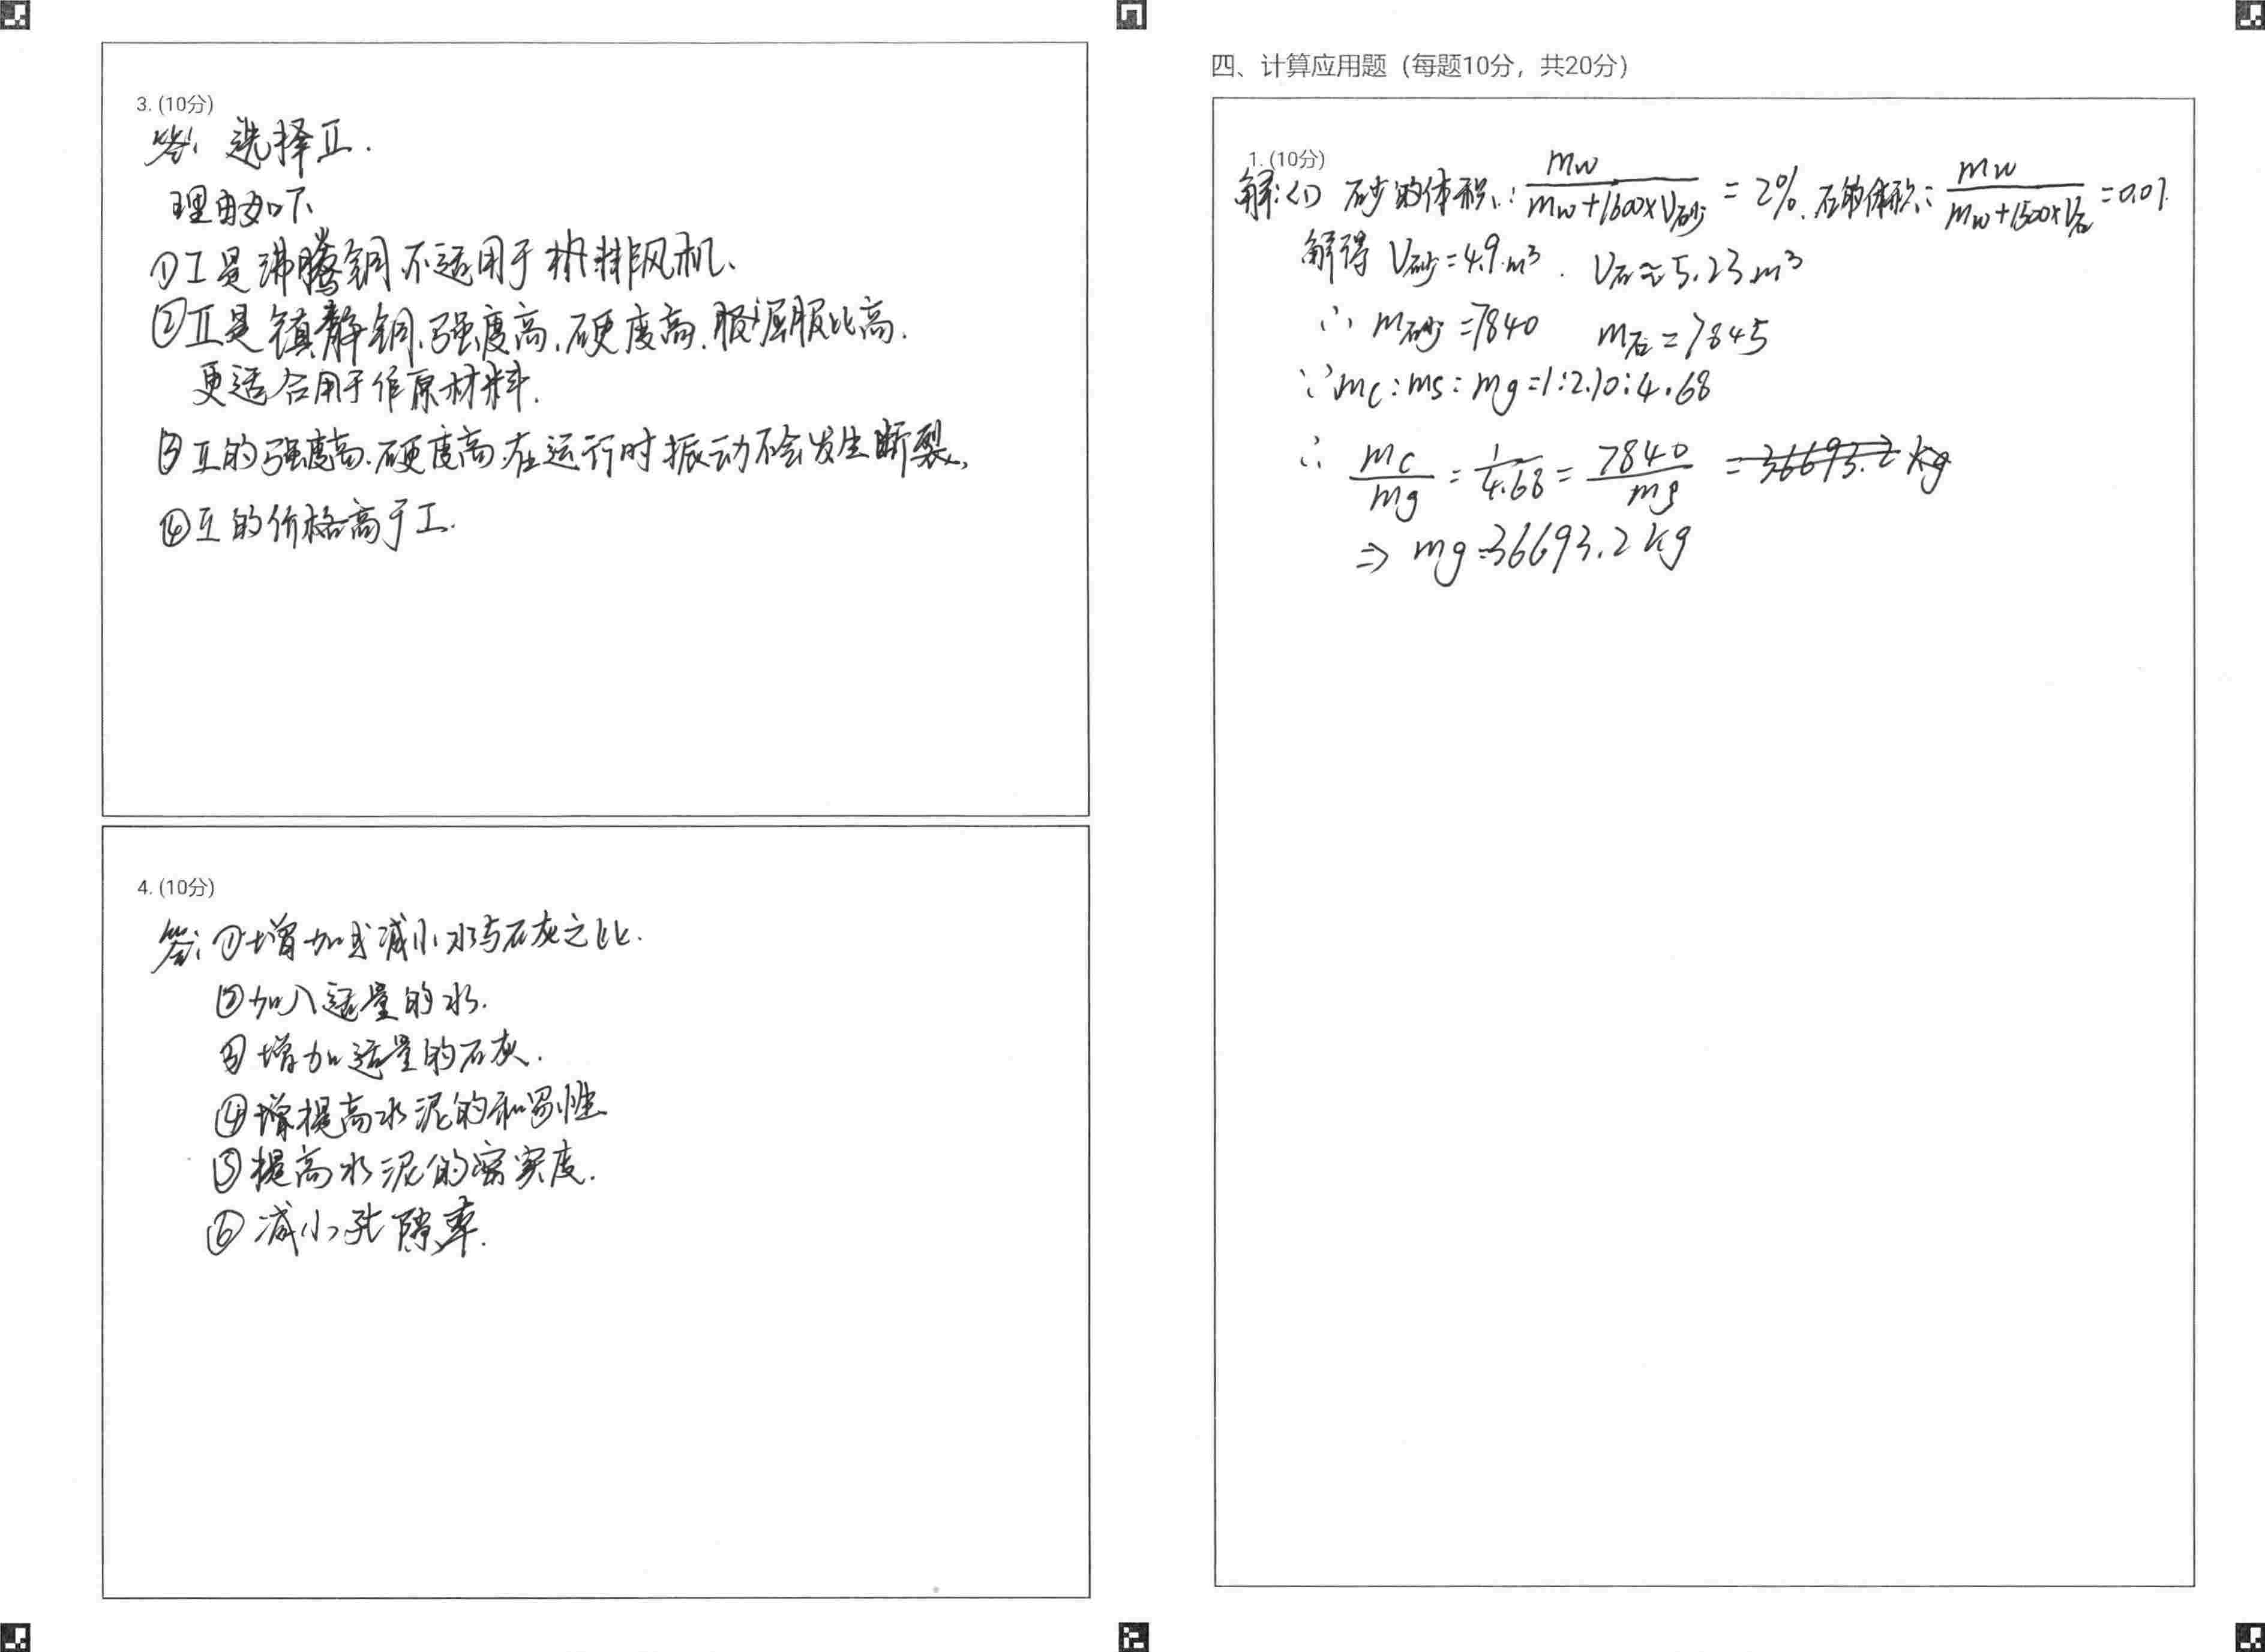 3. (10分)
答: 选择Ⅱ.
理由如下
①Ⅰ是沸腾钢 不适用于 排风机、
②Ⅱ是镇静钢、强度高、硬度高、屈服比高.
更适合用于作原材料.
③Ⅱ的强度高、硬度高,在运行时振动不会发生断裂、
④Ⅱ的价格高于Ⅰ.
4. (10分)
答: ①增加或减小水与石灰之比.
②加入适量的水.
③增加适量的石灰.
④提高水泥的和易性
⑤提高水泥的密实度.
⑥减小孔隙率.
四、计算应用题（每题10分，共20分）
1. (10分)
解:(1) 砂的体积: mw/(mw+1600×V砂) = 2%. 石的体积: mw/(mw+1500×V石) =0.01
解得 V砂=4.9m³. V石≈5.23m³
∴ m砂=7840 m石=7845
∵mc:ms:mg=1:2.10:4.68
∴ mc/mg = 1/4.68 = 7840/mg =36693.2 kg
⇒ mg=36693.2kg